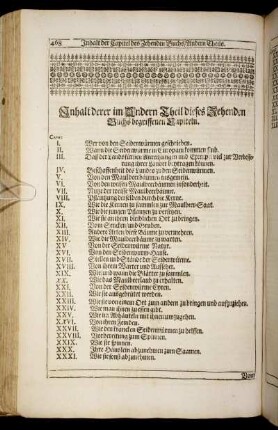 468 Inhalt der Capitel des Zehenden Buchs/Andern Theils.
Inhalt derer im Andern Theil dieses Zehenden
Buchs begriffenen Capiteln.
Cap.
I. Wer von den Seidenwürmen geschrieben.
II. Wann die Seidenwürme in Europam kommen sind.
III. Daß der Landsfürsten Anreitzungen und Exempel viel zur Verbesserung
IV. Beschaffenheit des Landes zu den Seidenwürmen.
V. Von den Maulbeerbäumen insgemein.
VI. Von den weissen Maulbeerbäumen insonderheit.
VII. Nutz der weissen Maulbeerbäume.
VIII. Pflantzung derselben durch die Kerne.
IX. Wie die Kernen zu samlen zur Maulbeer-Saat.
X. Wie die jungen Pflantzen zu versetzen.
XI. Wie sie an ihren bleiblichen Ort zu bringen.
XII. Vom Senken und
XIII. Andere Arten diese Bäume zu vermehren.
XIV. Wie die Maulbeerbäume zu warten.
XV. Von der Seidenwürme Natur.
XVI. Von dem Seidenwurm-Hause.
XVII. Stellen und Stände der Seidenwürme.
XVIII. Von ihrem Warter und Aufseher.
XIX. Wie und wann die Blätter zu sammlen.
XX. Wie das Maulbeerlaub zu erhalten.
XXI. Von der Seidenwürme Eyren.
XXII. Wie sie ausgebrütet werden.
XXIII. Wie sie von einem Ort zum andern zu bringen und aufzuziehen.
XXIV. Wie man ihnen zu essen gibt.
XXV. Wie im Abhäuten mit ihnen umzugehen.
XXVI. Von ihren Feinden.
XXVII. Wie den krancken Seidenwürmen zu helffen.
XXVIII. Vorbereitung zum Spinnen.
XXIX. Wie sie spinnen.
XXX. Ihre Häuslein abzunehmen zum Saamen.
XXXI. Wie sie sonst abzunehmen.
Von